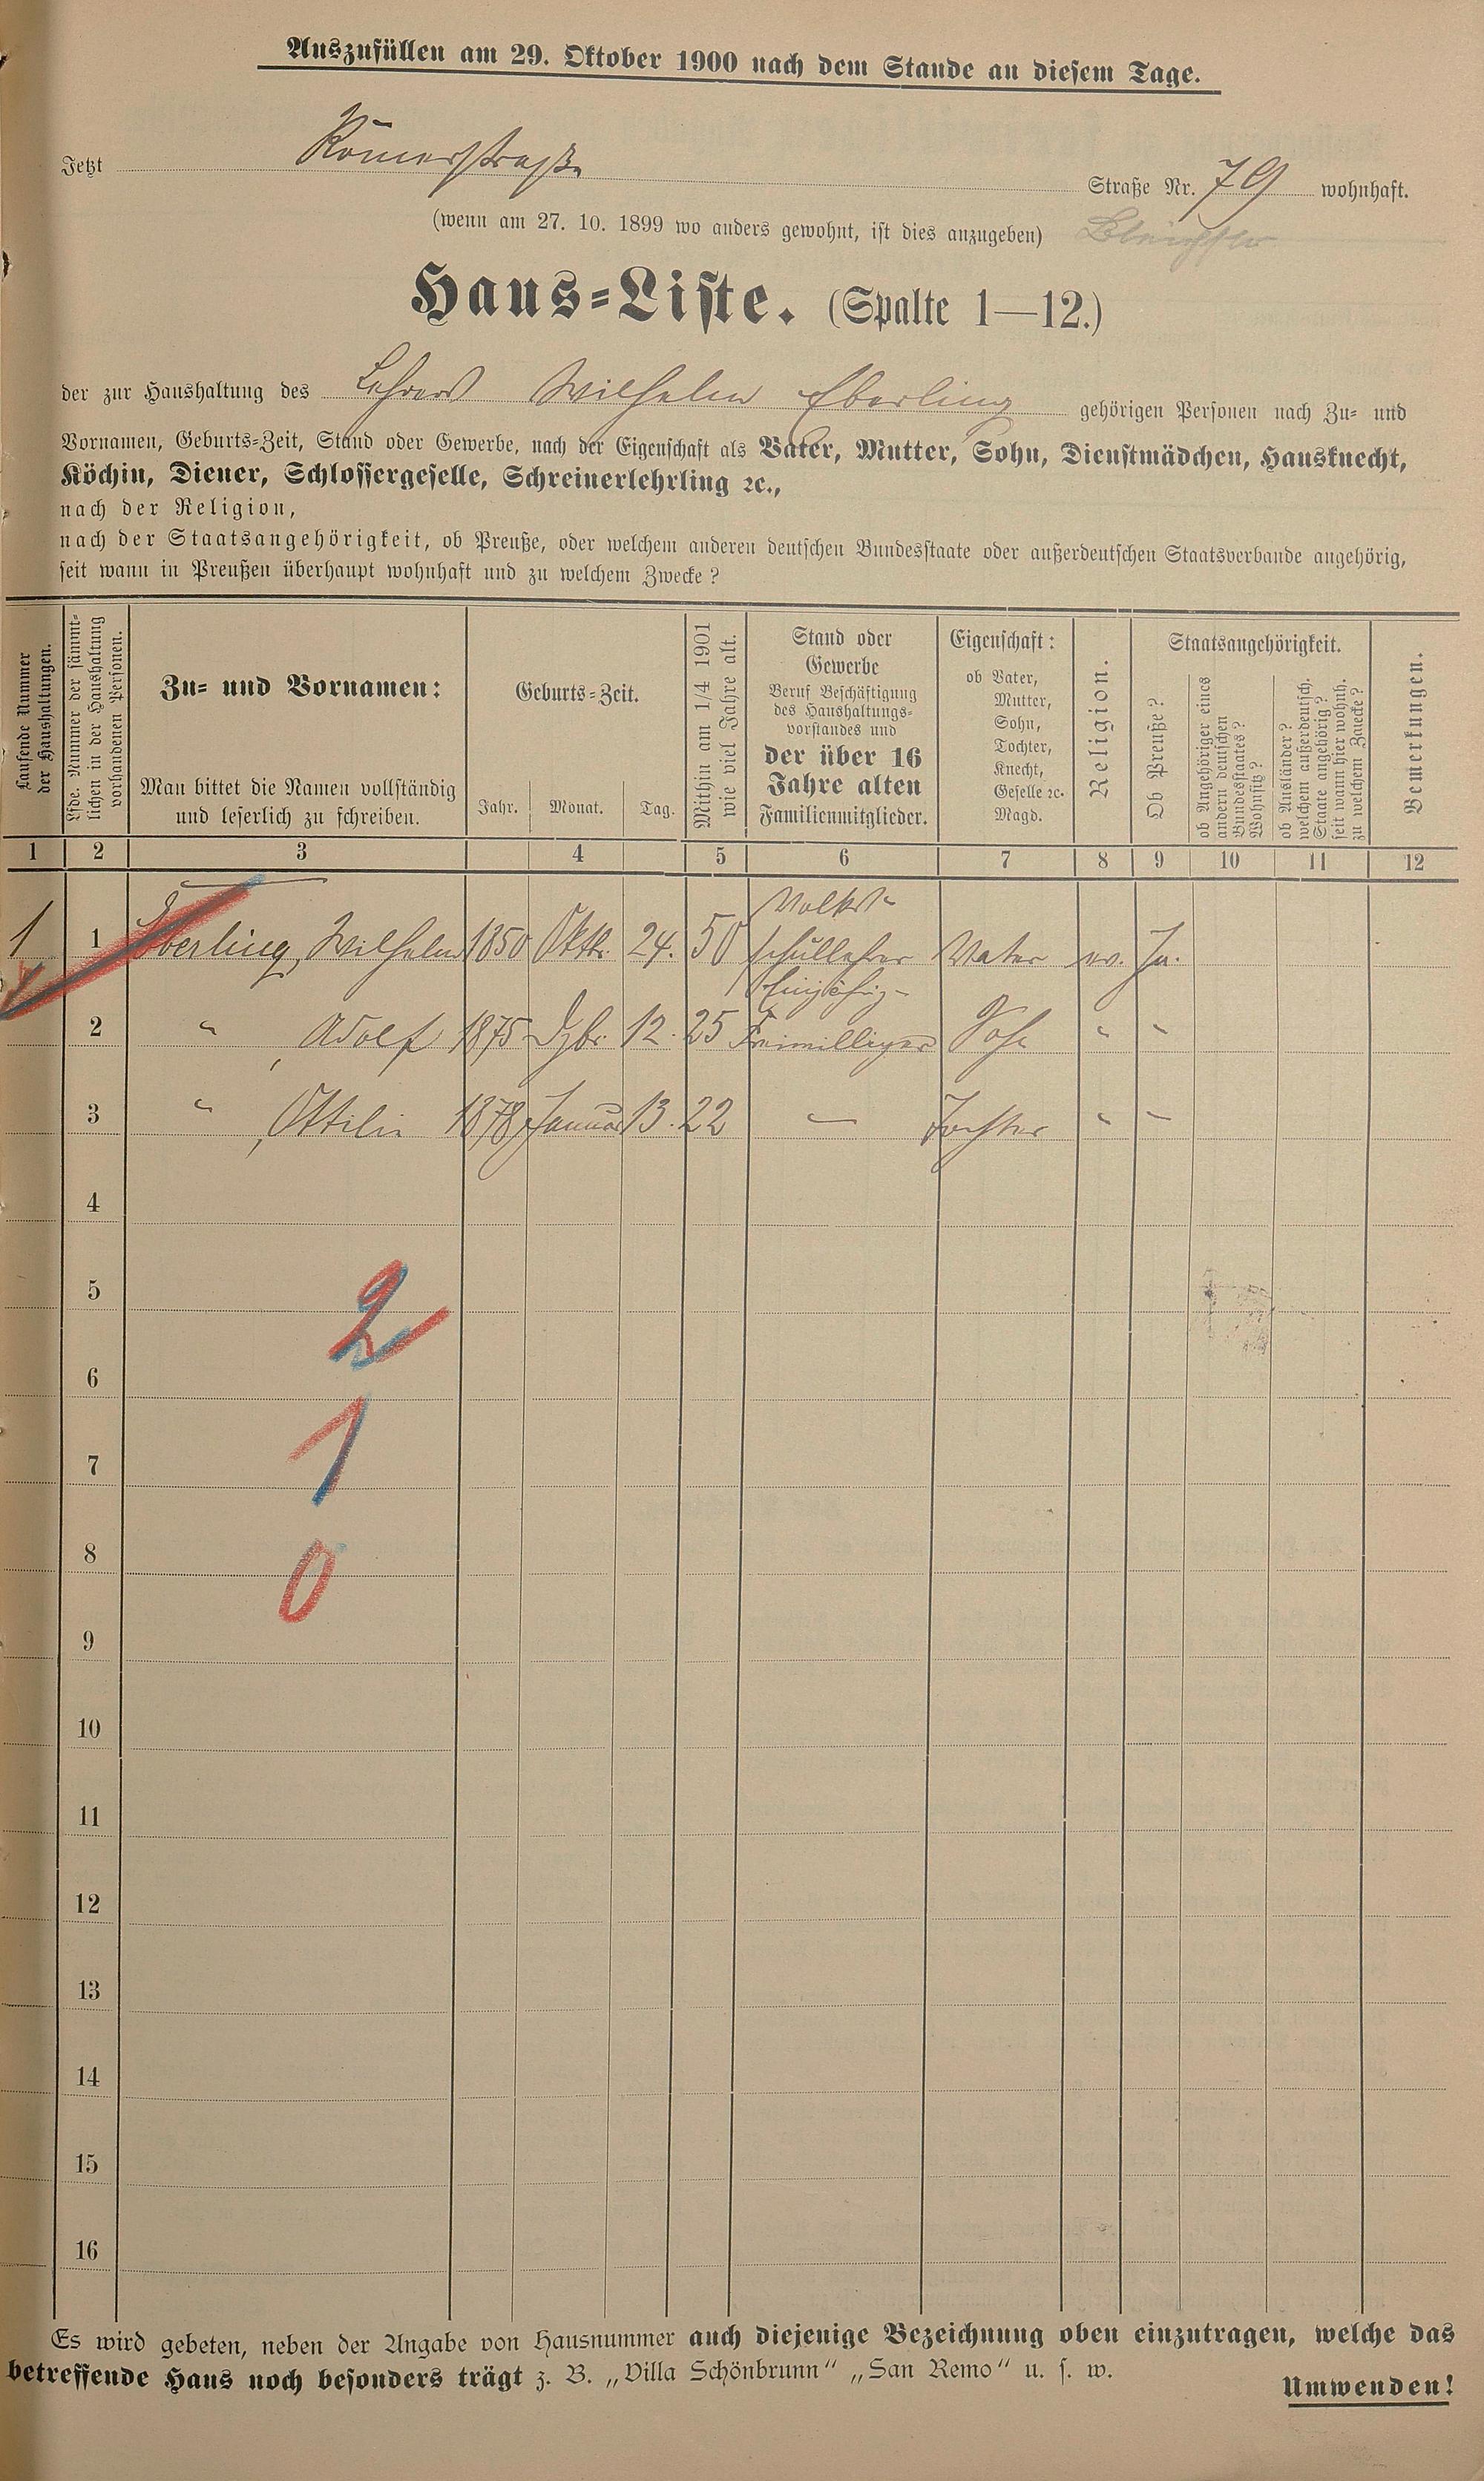 Auszufüllen am 29. Oktober 1900 nach dem Stande an diesem Tage.
Jetzt Römerstraße Straße Nr. 79 wohnhaft.
(wenn am 27. 10. 1899 wo anders gewohnt, ist dies anzugeben)
Haus=Liste. (Spalte 1—12.)
der zur Haushaltung des Lehrers Wilhelm Eberling gehörigen Personen nach Zu= und
Vornamen, Geburts=Zeit, Stand oder Gewerbe, nach der Eigenschaft als Vater, Mutter, Sohn, Dienstmädchen, Hausknecht,
Köchin, Diener, Schlossergeselle, Schreinerlehrling ꝛc.,
nach der Religion,
nach der Staatsangehörigkeit, ob Preuße, oder welchem anderen deutschen Bundesstaate oder außerdeutschen Staatsverbande angehörig,
seit wann in Preußen überhaupt wohnhaft und zu welchem Zwecke?
Laufende Nummer
der Haushaltungen.
Lfde. Nummer der sämmt=
lichen in der Haushaltung
vorhandenen Personen.
Zu= und Vornamen:
Man bittet die Namen vollständig
und leserlich zu schreiben.
Geburts=Zeit.
Jahr. Monat. Tag.
Mithin am 1/4 1901
wie viel Jahre alt.
Stand oder
Gewerbe
Beruf Beschäftigung
des Haushaltungs=
vorstandes und
der über 16
Jahre alten
Familienmitglieder.
Eigenschaft:
ob Vater,
Mutter,
Sohn,
Tochter,
Knecht,
Geselle ꝛc.
Magd.
Religion.
Staatsangehörigkeit.
Ob Preuße?
ob Angehöriger eines
andern deutschen
Bundesstaates?
Wohnsitz?
ob Ausländer?
welchem außerdeutsch.
Staate angehörig?
seit wann hier wohnh.
zu welchem Zwecke?
Bemerkungen.
1 2 3 4 5 6 7 8 9 10 11 12
Volks-
1 1 Eberling, Wilhelm 1850 Oktbr. 24. 50 schullehrer Vater ev. Ja.
Einjährig-
2 " , Adolf 1875 Dzbr. 12. 25 Freiwilliger Sohn " "
3 " , Ottilie 1878 Januar 13. 22 — Tochter " "
4
5
2
6
7
1
8
0
9
10
11
12
13
14
15
16
Es wird gebeten, neben der Angabe von Hausnummer auch diejenige Bezeichnung oben einzutragen, welche das
betreffende Haus noch besonders trägt z. B. „Villa Schönbrunn“ „San Remo“ u. s. w.
Umwenden!